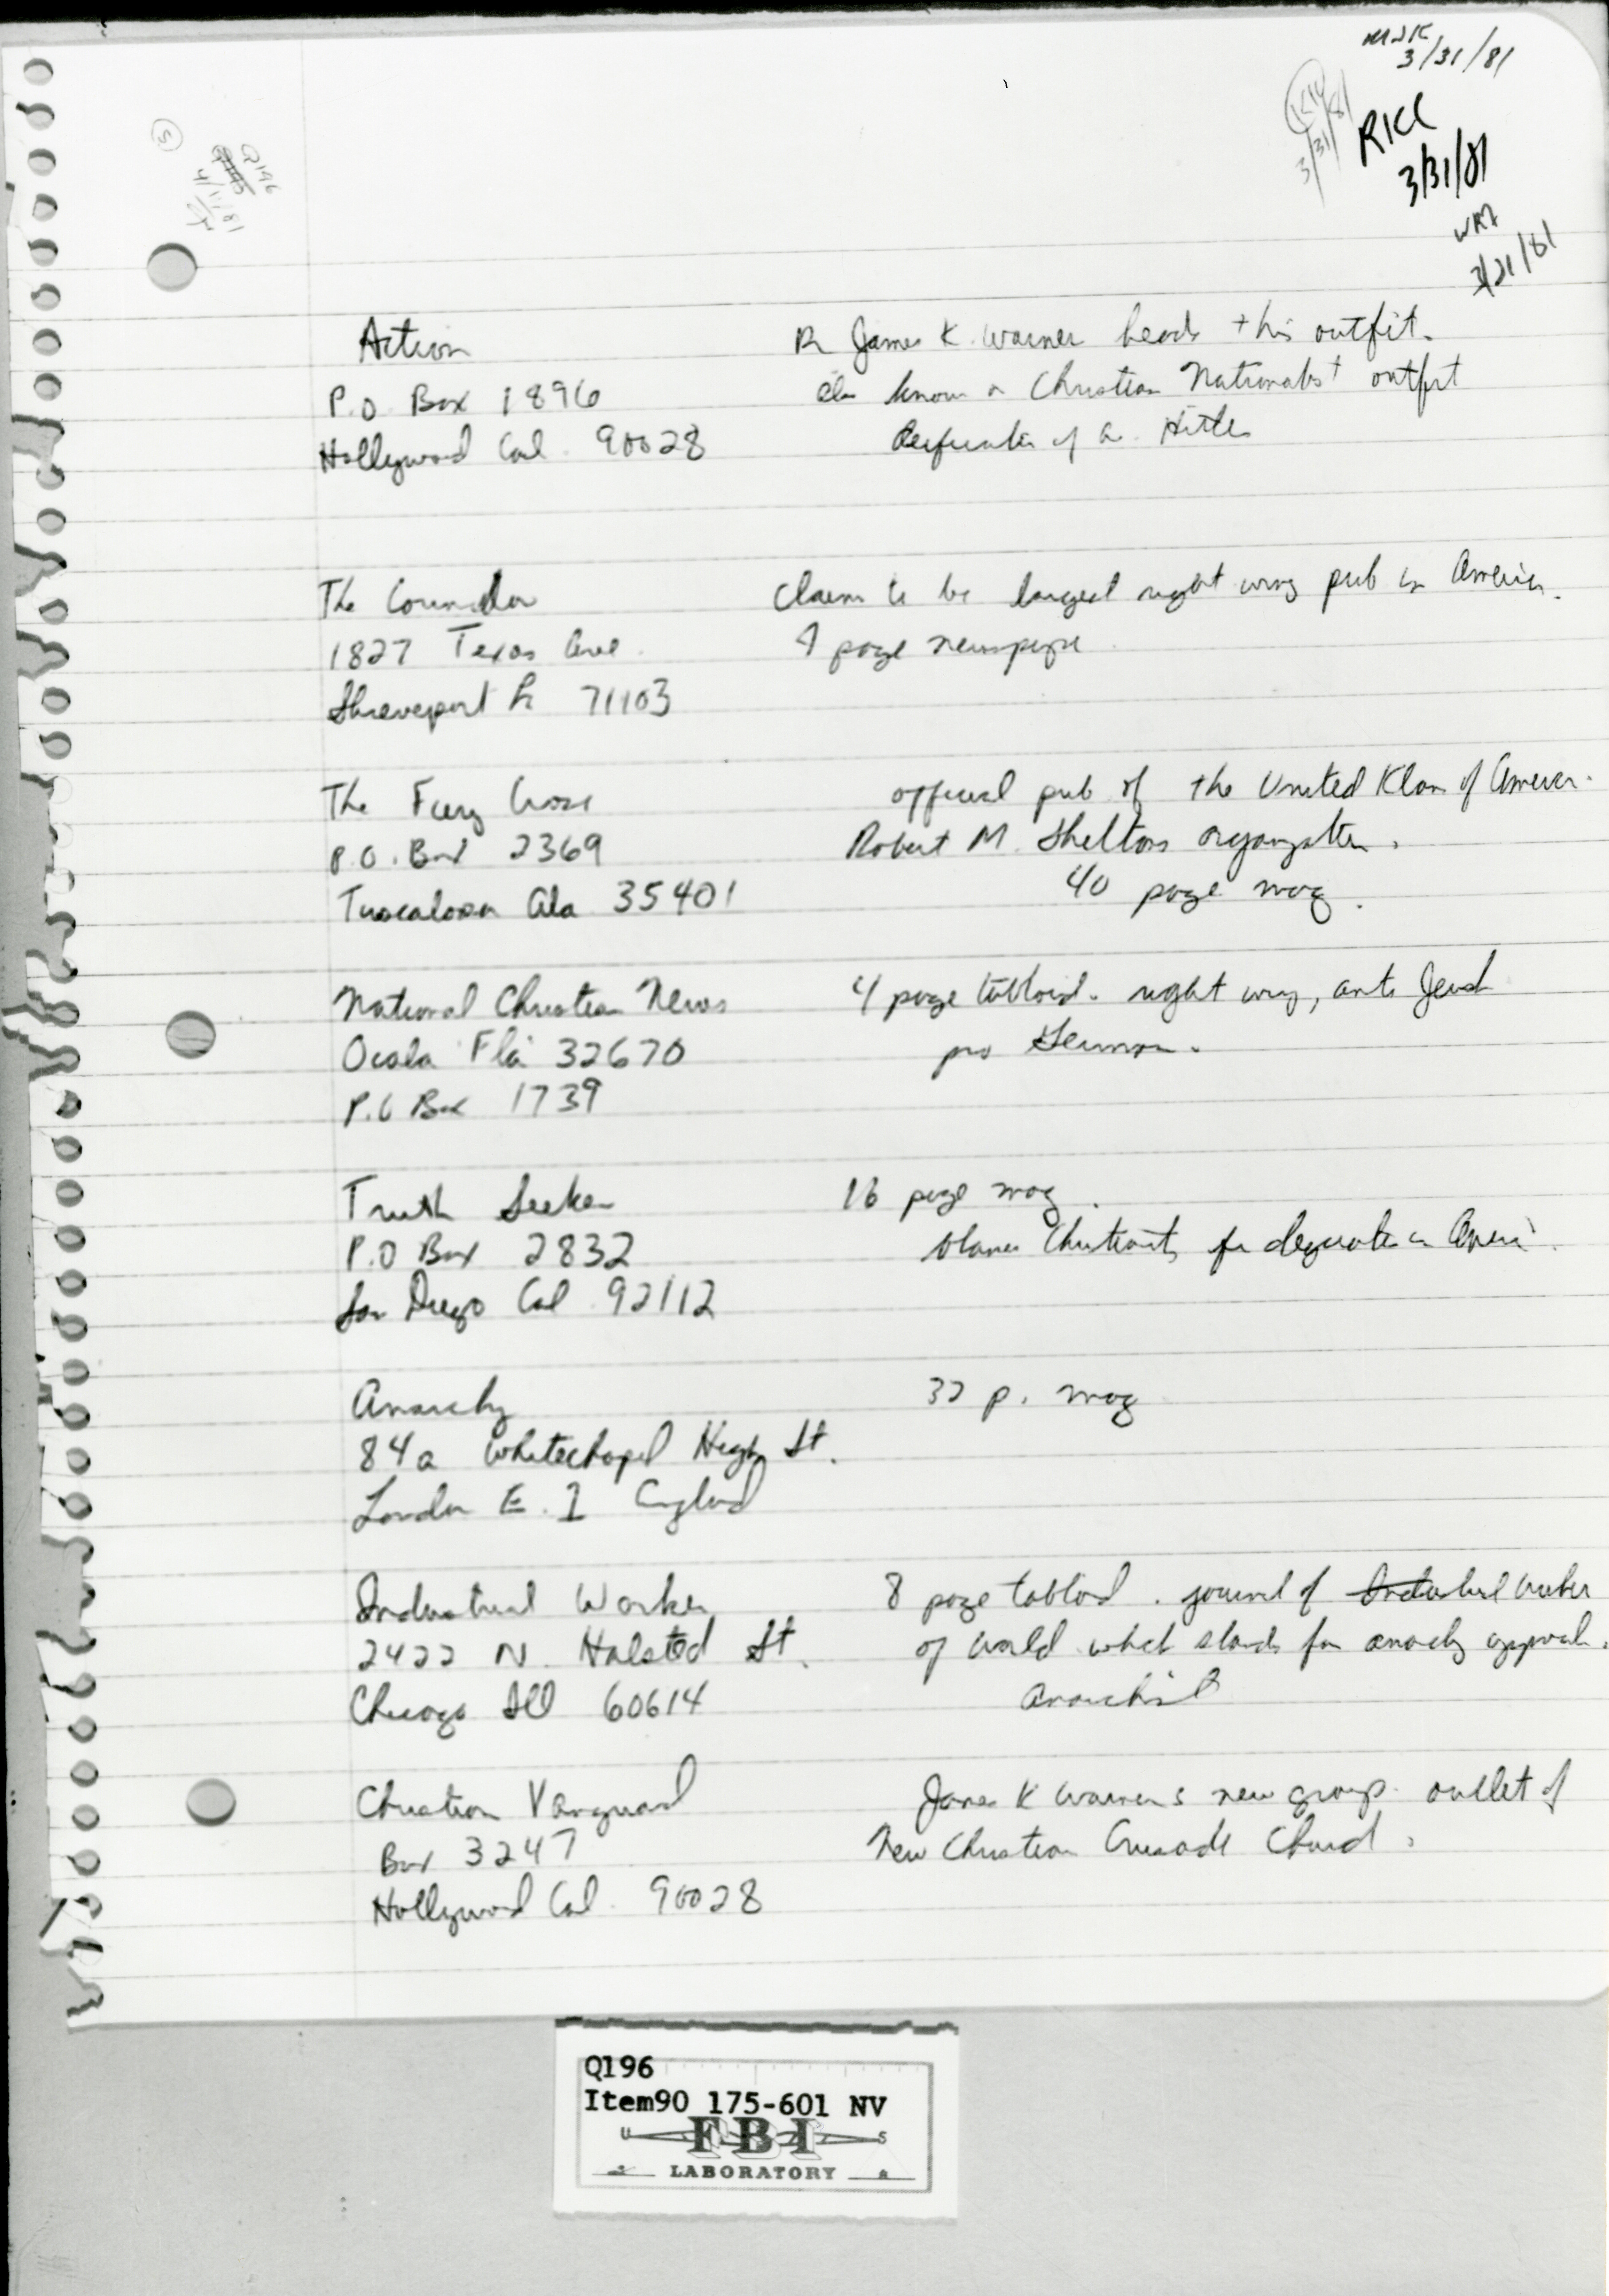 MJK
3/31/81
3/31/81
RKC
3/31/81
3/31/81
Q196
4/1/81
5
Action
P.O. Box 1896
Hollywood Cal. 90028
James K. Warner heads this outfit.
also known as Christian Nationalist outfit
of A. Hitler
The Councilor
1827 Texas Ave.
Shreveport La 71103
Claim to be largest right wing pub in America.
page newspaper
The Fiery Cross
P.O. Box 2369
Tuscaloosa Ala 35401
official pub of the United Klan of America.
Robert M. Sheltons organization.
40 page mag.
National Christian News
Ocala Fla 32670
P.O Box 1739
4 page tabloid. right wing, anti Jewish
pro German.
Truth Seeker
P.O Box 2832
San Diego Cal 92112
16 page mag.
blames Christianity for in America.
Anarchy
84a Whitechapel High St.
London E. 1 England
32 p. mag
Industrial Worker
2422 N. Halsted St.
Chicago Ill 60614
8 page tabloid. journal of Industrial Worker
of World which stands for anarchy approach.
anarchist
Christian Vanguard
Box 3247
Hollywood Cal. 90028
James K Warner's new group. outlet of
New Christian Crusade Church.
Q196
Item90 175-601 NV
U FBI S
LABORATORY